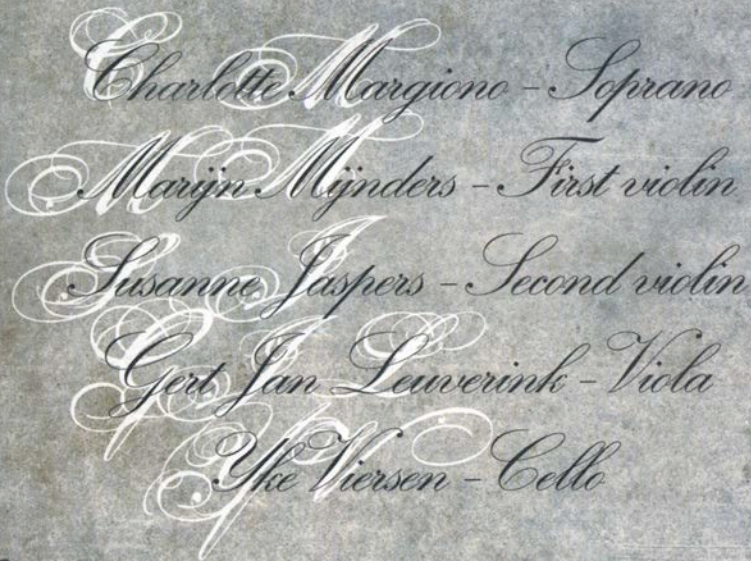 Charlotte Margiono - Soprano
Marijn Mijnders - First violin
Susanne Jaspers - Second violin
Gert Jan Leuverink - Viola
Yke Viersen - Cello